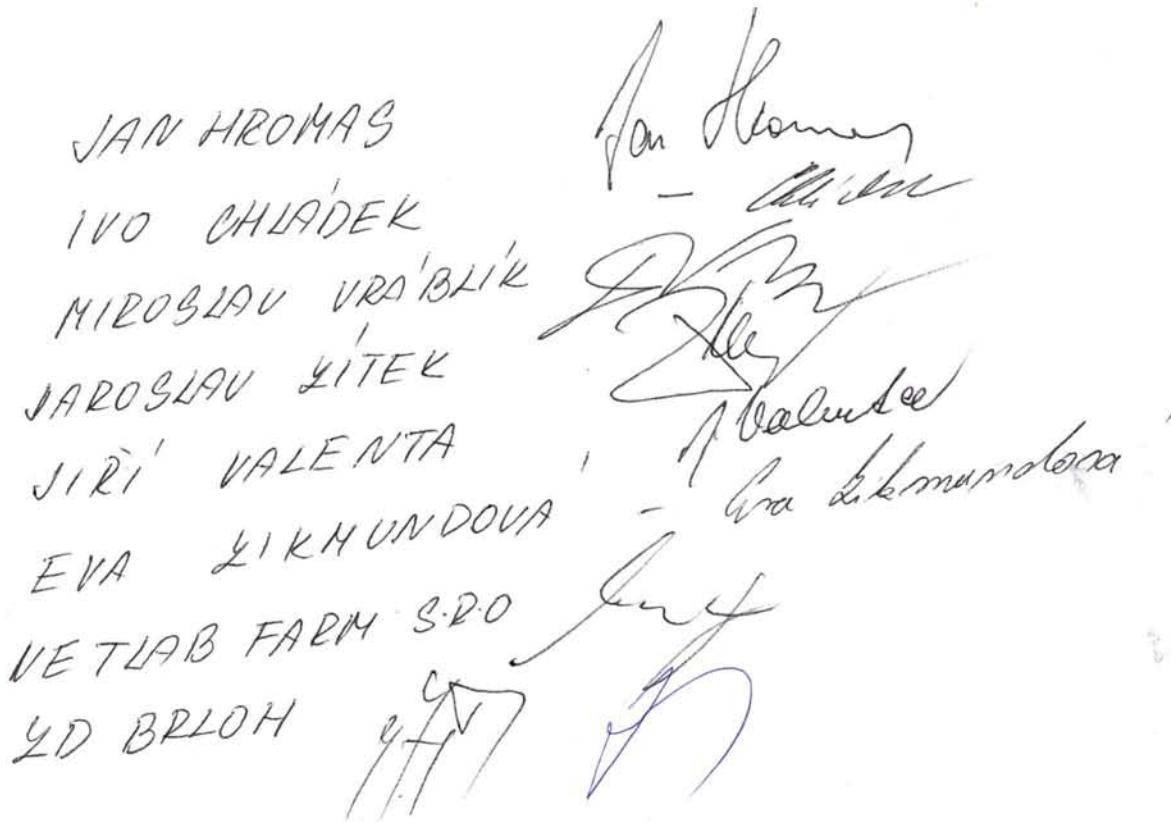 JAN HROMAS Jan Hromas
IVO CHLÁDEK -
MIROSLAV VRÁBLÍK
JAROSLAV ZÍTEK
JIŘÍ VALENTA J. Valenta
EVA ZIKMUNDOVÁ - Eva Zikmundová
VETLAB FARM S.R.O
ZD BRLOH